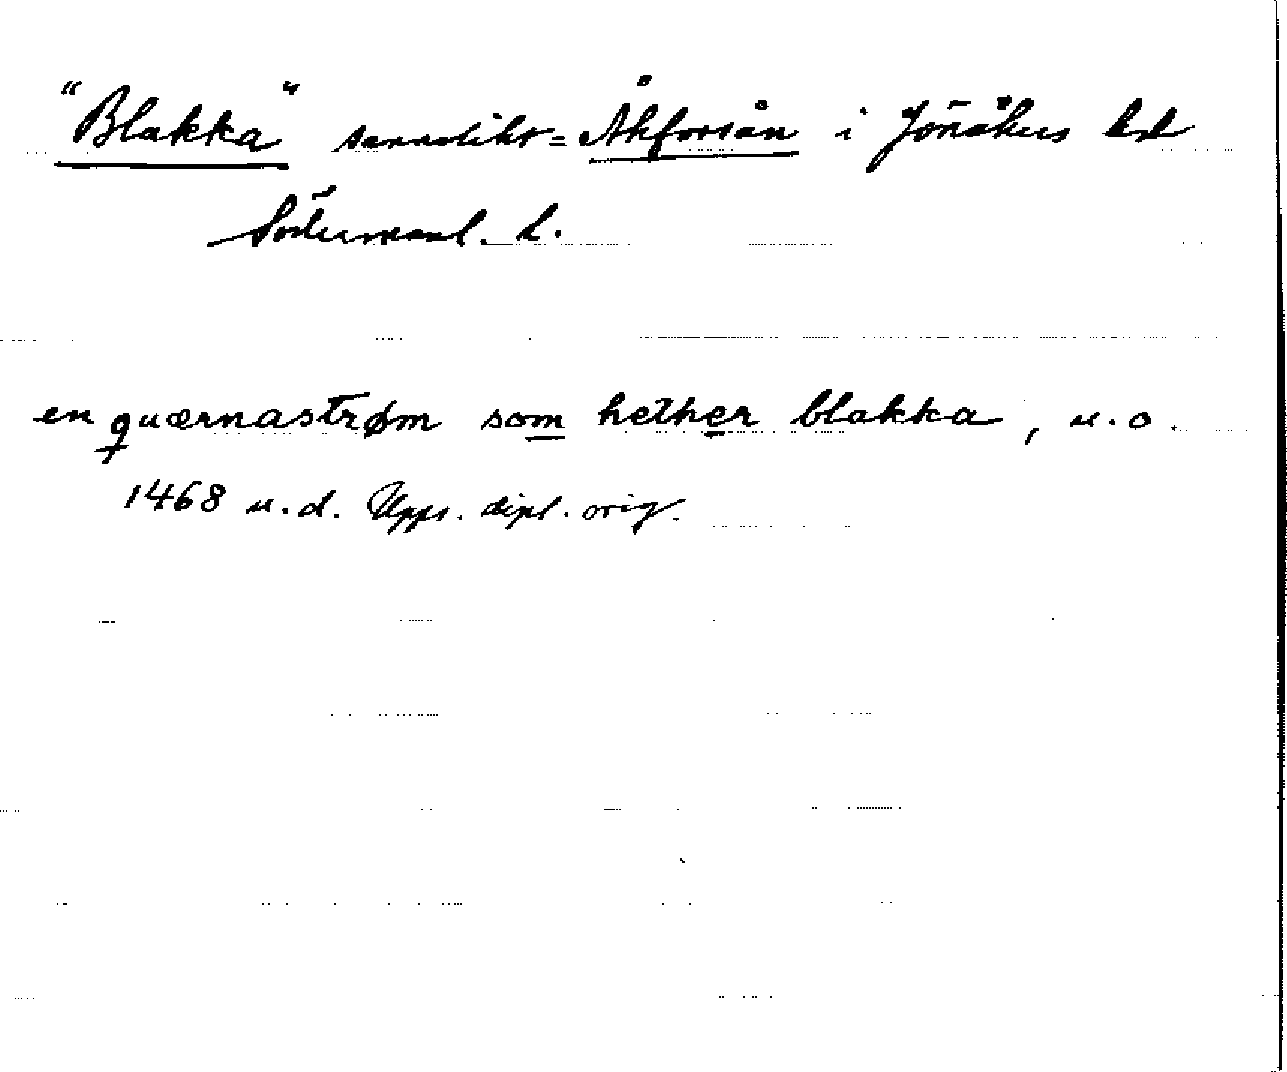 "Blakka" sannolikt = Åkforsån i Jönåkers hd
Södermanl. l.
en quærnastrøm som hether blakka, u.o.
1468 u.d. Upps. dipl. orig.